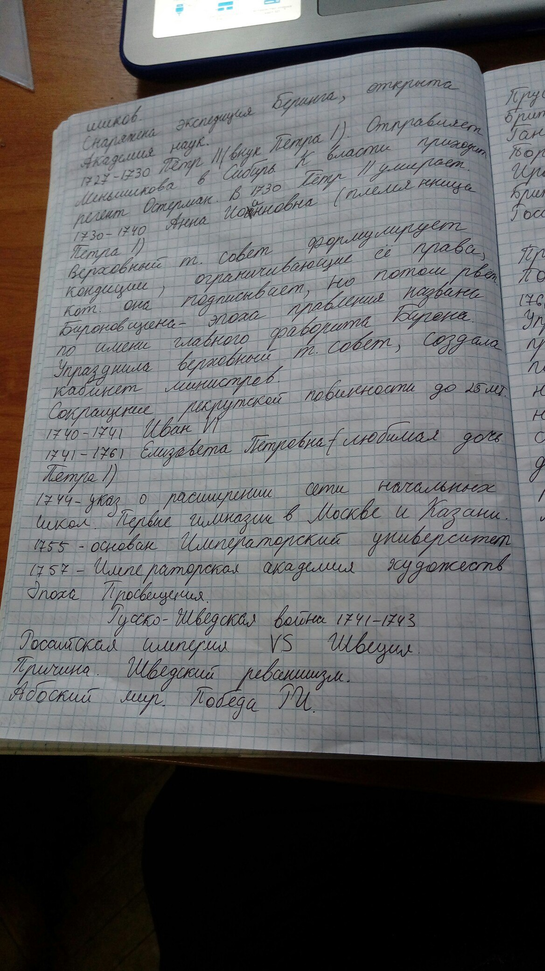 шиков
Снаряжена экспедиция Беринга, открыта
Академия наук.
1727-1730 Петр II (внук Петра I) Отправляет
Меньшикова в Сибирь К власти приходит
регент Остерман В 1730 Петр II умирает.
1730-1740 Анна Иоанновна (племянница
Петра I)
Верховный т. совет формулирует
кондиции, ограничивающие её права,
кот она подписывает, но потом рвет
Бироновщина - эпоха правления названа
по имени главного фаворита Бирона.
Упразднила верховный т. совет, создала
кабинет министров.
Сокращение рекрутской повинности до 25 лет.
1740-1741 Иван VI
1741-1761 Елизавета Петровна (любимая дочь
Петра I)
1744-указ о расширении сети начальных
школ. Первые гимназии в Москве и Казани.
1755 - основан Императорский университет
1757 - Императорская академия художеств
Эпоха Просвещения.
Русско-Шведская война 1741-1743
Российская империя VS Швеция
Причина. Шведский реваншизм.
Абоский мир. Победа РИ.